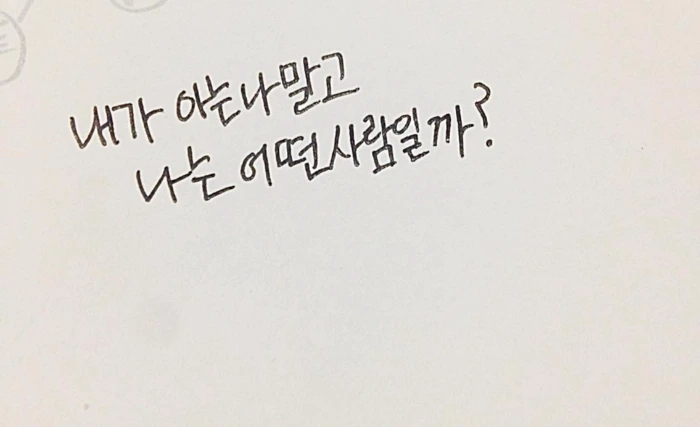 내가 아는 나 말고
나는 어떤 사람일까?